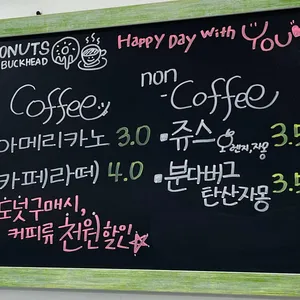 DONUTS
BUCKHEAD
Happy Day with You
Coffee
아메리카노 3.0
카페(라떼) 4.0
도넛구매시,
커피류 천원 할인
non
-Coffee
·쥬스 오렌지,자몽 3.5
·분다버그
탄산자몽 3.5